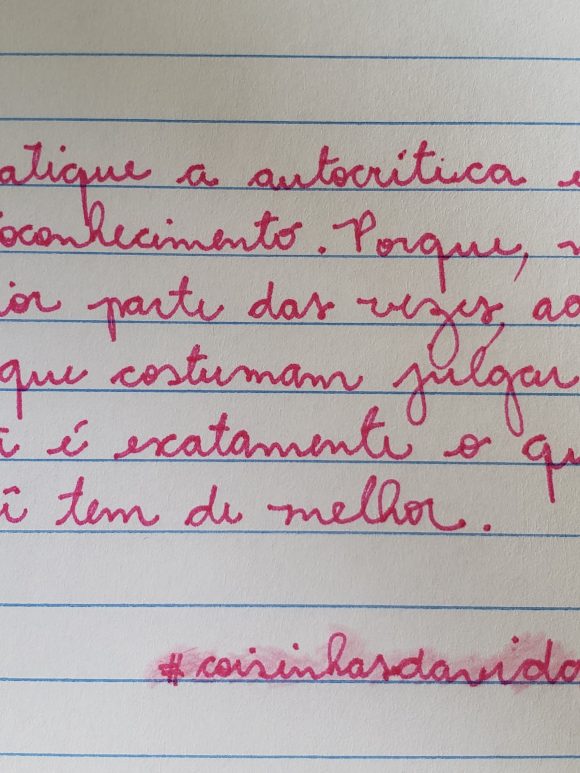 atique a autocrítica e
oconhecimento. Porque, n
ior parte das vezes, ao
que costumam julgar
ê é exatamente o qu
ê tem de melhor.
#coisinhasdavida